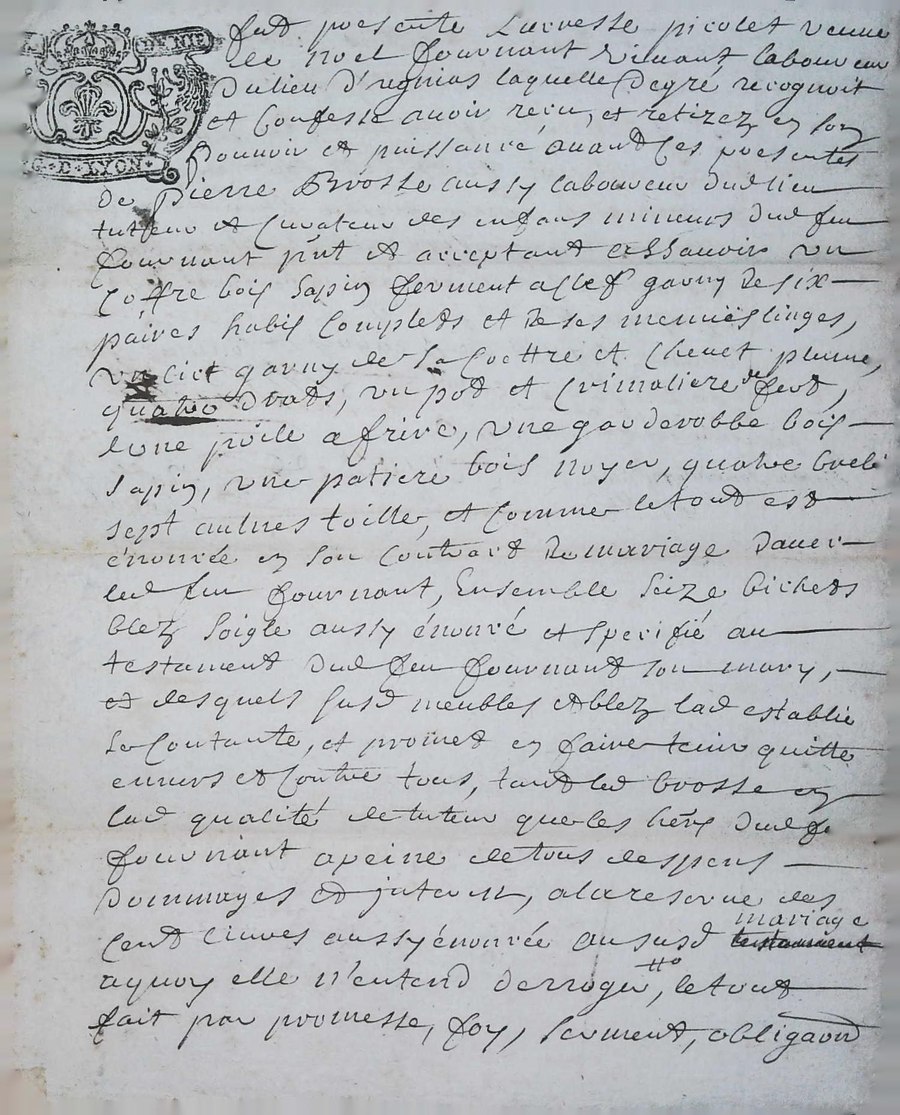 DENIE
G · D · LYON ·
fut presente Lucresse picolet veuve
de noel fournant vivant laboureur
du lieu d'regnias laquelle de gré recognoit
et Confesse avoir reçu, et retirez en son
Pouvoir et puissance avant Ces presentes
de Pierre Brosse aussy laboureur dud lieu
tutteur et Curateur des enfans mineurs dud feu
fournant pnt et acceptant assavoir un
Coffre bois Sapin ferment a Clef garny de six
paires habis Complets et de ses menües linges,
un lict garny de sa Coettre et Chevet plume,
quatre drats, un pot et Crimaliere de fert,
une poile a frire, une garderobbe bois
Sapin, une patiere bois noyer, quatre brebi
sept aulnes toille, et Comme le tout est
énoncée en son Contract de mariage d'avec
led feu fournant, Ensemble Seize bichets
blez Soigle aussy énoncé et Specifié au
testament dud feu fournant son mary,
et desquels susd meubles et blez lad establie
se Contante, et promet en faire tenir quitte
envers et Contre tous, tant led brosse en
lad qualité de tuteur que les hers dud f
fournant a peine de tous despens
dommages et interest, a la reserve des
Cent livres aussy énoncée au susd mariage
testament
a quoy elle n'entend derroger, le tout
fait par promesse, foy, serment, obligaon